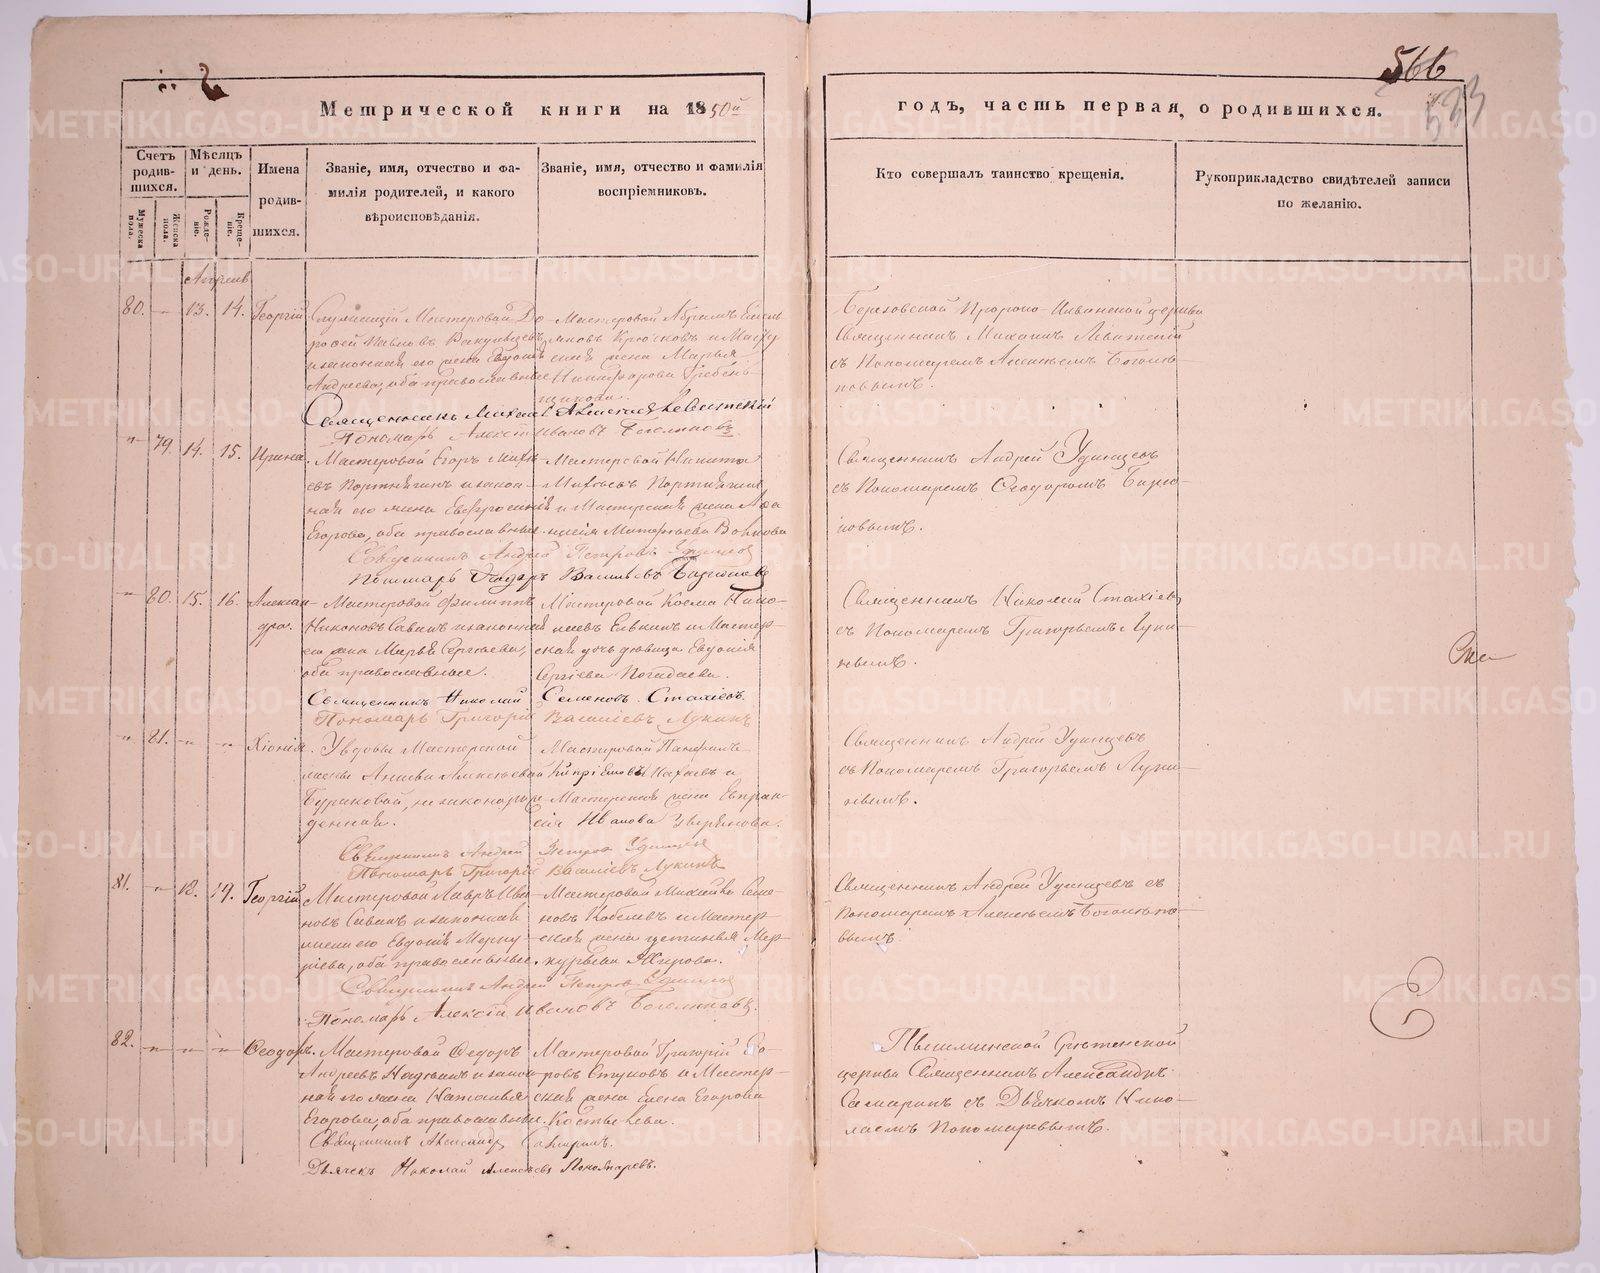 566
533
Метрической книги на 1850й
годъ, часть первая, о родившихся.
Счетъ родив-шихся.
Мужеска пола.
Женска пола.
Мѣсяцъ и день.
Рожде-ніе.
Креще-ніе.
Имена родив-шихся.
Званіе, имя, отчество и фа-
милія родителей, и какого
вѣроисповѣданія.
Званіе, имя, отчество и фамилія
воспріемниковъ.
Кто совершалъ таинство крещенія.
Рукоприкладство свидѣтелей записи
по желанію.
Апрель
80. 13. 14. Георгій
Служащій Мастеровой До-
рофей Павловъ
и законная его жена Евдокія
Андреева, оба православные
Мастеровой Абрамъ Емель
яновъ Крюковъ и Масте
ская жена Марья
Никифорова Гребень-
щикова.
Березовской Пророко-Ильинской церкви
Священникъ Михаилъ Левитскій
съ Пономаремъ Алексѣемъ Боголѣ-
повымъ.
Священникъ Михаилъ Левитскій
Пономарь Алексѣй Ивановъ Боголѣповъ
79. 14. 15. Ирина.
Мастеровой Егоръ
евъ Портнягинъ и закон-
ная его жена Евфросинія
Егорова, оба православные.
Мастеровой Никита
Портнягинъ
и Мастерская жена
Матфѣева Волкова
Священникъ Андрей Удинцевъ
съ Пономаремъ Ѳеодоромъ Бирю-
ковымъ.
Священникъ Андрей Петровъ Удинцов
Пономарь Ѳедоръ Васильевъ
80. 15. 16. Алексан-
дра.
Мастеровой Филиппъ
Никоновъ Савинъ и законная
его жена Марья Сергѣева,
оба православные.
Мастеровой Косма Нико-
лаевъ Елькинъ и Мастер-
ская дочь дѣвица Евдокія
Сергѣева Погадаева.
Священникъ Николай Стахіевъ
съ Пономаремъ Григорьемъ Луки-
нымъ.
Священникъ Николай Семеновъ Стахіевъ
Пономарь Григорій Васильевъ Лукинъ
81. Хіонія.
У вдовы Мастерской
жены Анисьи Алексѣевой
Буриковой, незаконорож
денная.
Мастеровой Панфилъ
и
Мастерская жена Евпрак-
сія Иванова Звѣрикова.
Священникъ Андрей Удинцевъ
съ Пономаремъ Григорьемъ Луки-
нымъ.
Священникъ Андрей Петров Удинцев
Пономарь Григорій Васильевъ Лукинъ
81. 18. 19. Георгій
Мастеровой Лавръ Ива-
новъ Савинъ и законная
жена его Евдокія Мерку-
ріева, оба православные.
Мастеровой Михайло Семе-
новъ Кобелевъ и Мастер-
ская жена Устинья Мер-
курьева Жирова.
Священникъ Андрей Удинцевъ съ
Пономаремъ Алексѣемъ Боголѣпо-
вымъ.
Священникъ Андрей Петров Удинцев
Пономарь Алексѣй Ивановъ Боголѣповъ.
82. Ѳеодоръ.
Мастеровой Ѳедоръ
Андреевъ и закон-
ная его жена Наталья
Егорова, оба православные.
Мастеровой Григорій Его-
ровъ Стуковъ и Мастер-
ская жена Елена Егорова
Костылева.
Пышминской Срѣтенской
церкви Священникъ Александръ
Сатаринъ съ Дьячкомъ Нико-
лаемъ Пономаревымъ.
Священникъ Александр
Дьячекъ Николай Алексѣевъ Пономаревъ.
METRIKI.GASO-URAL.RU